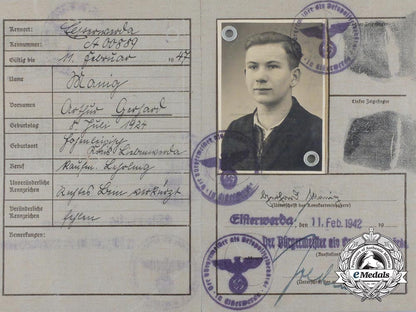 Kennort: Elsterwerda
Kennummer: A 00889
Gültig bis 11. Februar 1947
Name Manig
Vornamen Arthur Gerhard
Geburtstag 8. Juli 1924
Geburtsort
Kreis Liebenwerda
Beruf kaufm. Lehrling
Unveränderliche Kennzeichen rechtes Bein verkürzt
Veränderliche Kennzeichen fehlen
Bemerkungen:
Linker Zeigefinger
Gerhard Manig
(Unterschrift des Kennkarteninhabers)
Elsterwerda, 11. Feb. 1942 19
Der Bürgermeister als
Der Bürgermeister als Ortspolizeibehörde
(Unterschrift
eMedals